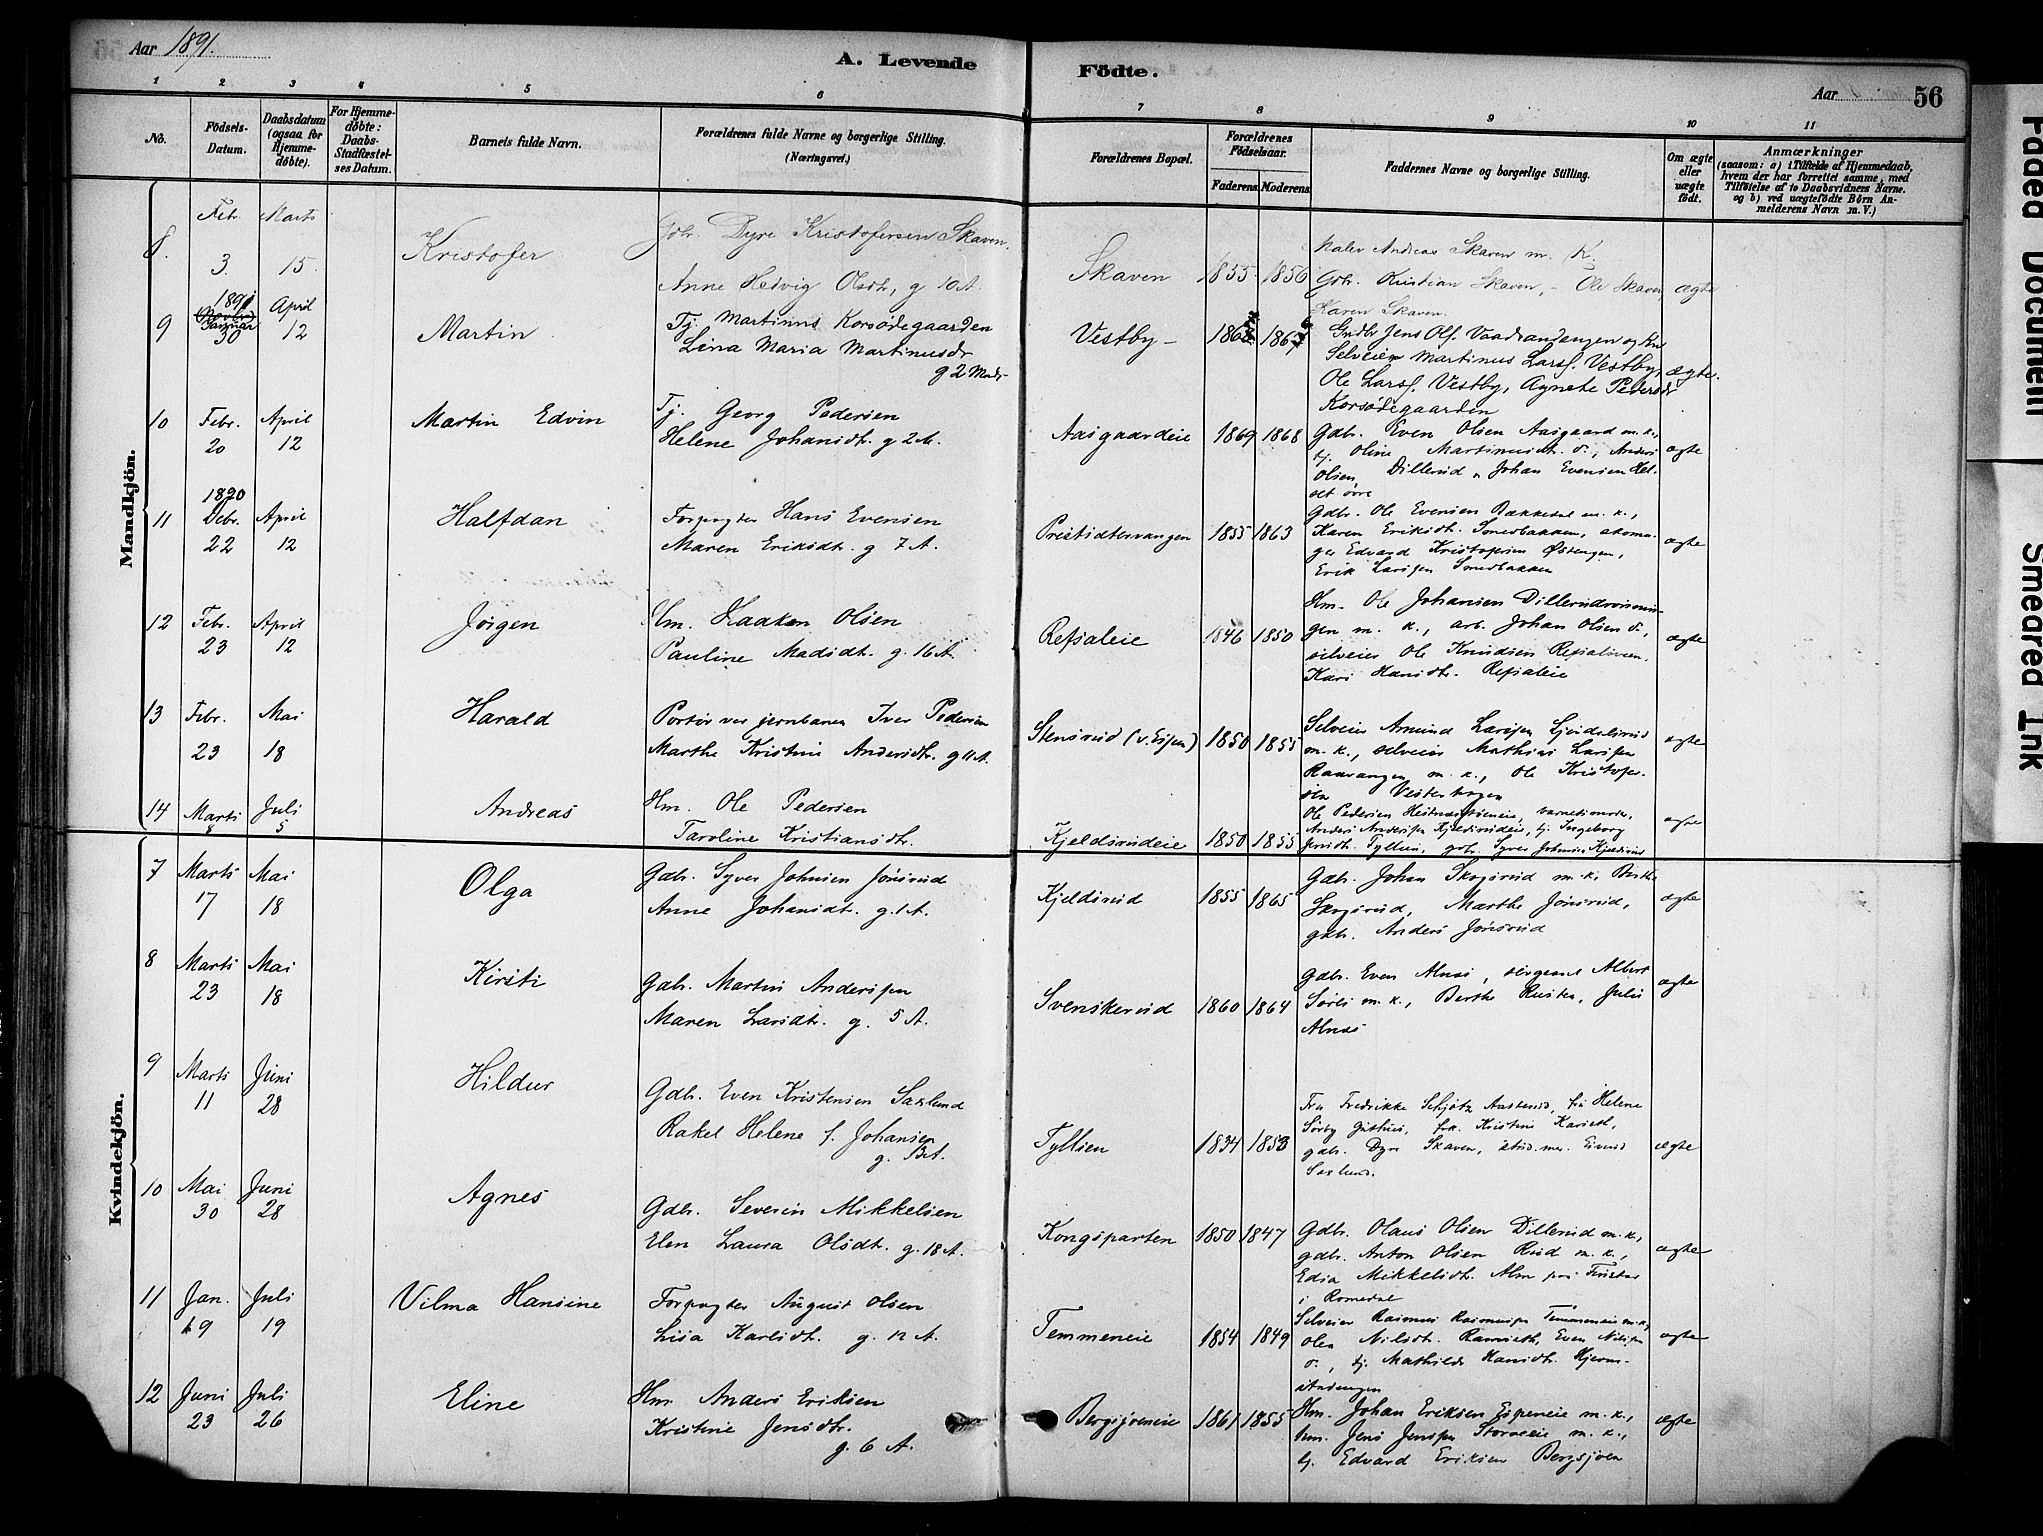 Aar 1891.
A. Levende Födte.
Aar
56
1 2 3 4 5 6 7 8 9 10 11
No.
Födsels-Datum.
Daabsdatum (ogsaa for Hjemme-döbte).
For Hjemme-döbte: Daabs-Stadfæstel-ses Datum.
Barnets fulde Navn.
Forældrenes fulde Navne og borgerlige Stilling. (Næringsvei.)
Forældrenes Bopæl.
Forældrenes Födselsaar.
Faderens. Moderens.
Faddernes Navne og borgerlige Stilling.
Om ægte eller uægte födt.
Anmærkninger
(saasom: a) i Tilfælde af Hjemmedaab,
hvem der har forrettet samme, med
Tilföielse af to Daabsvidners Navne.
og b) ved uægtefödte Börn An-
melderens Navn m. V.)
Mandkjön.
8. Febr. 3. Marts 15.
Kristofer
Gdb. Dyre Kristofersen Skaven.
Anne Hedvig Olsdt., g 10 A.
Skaven 1855 1856
Maler Andreas Skaven m. K.
Gdb. Kristian Skaven, - Ole Skaven,
Karen Skaven.
ægte
9 1891 Januar 30 April 12
Martin
Tj. Martinus Korsödegaarden
Lina Maria Martinusdr
g 2 Mndr
Vestby
Gndbr Jens Ols. Vaadrandengen og Kn
Selveier Martinus Larss. Vestby,
Ole Larss. Vestby, Agnete Pedersdr
Korsödegaarden
ægte.
10 Febr. 20 April 12
Martin Edvin
Tj. Georg Pedersen
Helene Johansdt. g 2 M.
Aasgaardeie 1869 1868
Gdb. Even Olsen Aasgaard m. k.,
tj. Oline Martinusdt. s., Anders
Olsen Dillerud, Johan Evensen Hel-
set övre
ægte
11 1890 Debr. 22 April 12
Halfdan
Forpagter Hans Evensen
Maren Eriksdt. g 7 A.
Prestsætervangen 1855 1863
Gdb. Ole Evensen Bækkedal m. k.,
Karen Eriksdt. Smedbakken, skoma-
ger Edvard Kristofersen Østengen,
Erik Larssen Smedbakken
ægte
12 Febr. 23 April 12
Jörgen
Hm. Haaken Olsen
Pauline Madsdt. g. 16 A.
Refsaleie 1846 1850
Hm. Ole Johansen Dillerud
gen m. k., arb. Johan Olsen s.,
selveier Ole Knudsen Refsal
Kari Hansdt. Refsaleie
ægte
13 Febr. 23 Mai 18
Harald
Portör ved jernbanen Iver Pedersen
Marthe Kristine Andersdt. g 11 A.
Stensrud (v. Espen) 1850 1855
Selveier Amund Larssen
m. k., selveier Mathias Larssen
Raavangen m. k., Ole Kristofer-
sen Vesterhagen
ægte
14 Marts 8 Juli 5
Andreas
Hm. Ole Pedersen
Taroline Kristiansdt.
Kjeldsrudeie 1850 1855
Ole Pedersen
Anders Andersen Kjeldsrudeie, tj. Ingeborg
Jensdt. Tyllien, gdb. Syver Johnsen Kjeldsrud
ægte
Kvindekjön.
7 Marts 17 Mai 18
Olga
Gdb. Syver Johnsen Jönsrud
Anne Johansdt. g. 1 A.
Kjeldsrud 1855 1865
Gdb. Johan Skogsrud m. k. Berthe
Skogsrud, Marthe Jönsrud,
gdb. Anders Jönsrud
ægte
8 Marts 23 Mai 18
Kirsti
Gdb. Martin Anderssen
Maren Larsdt. g. 5 A.
Svenskerud 1860 1864
Gdb. Even Alnæs, sergeant Albert
Sörli m. k., Berthe Rusten, Julie
Alnæs
ægte
9 Marts 11 Juni 28
Hildur
Gdb. Even Kristensen Saxlund
Rakel Helene f. Johansen
Tyllien 1834 1853
Fru Fredrikke Schjötz Aasterud, fru Helene
Sörby Gusthus, frk. Kristine Karseth,
gdb. Dyre Skaven, stud. med. Eivind
Saxlund.
ægte
10 Mai 30 Juni 28
Agnes
Gdb. Severin Mikkelsen
Elen Laura Olsdt. g. 18 A.
Kongsparten 1850 1847
Gdb. Olaus Olsen Dillerud m. k.,
gdb. Anton Olsen Rud m. k.,
Edia Mikkelsdt. Alm paa Finstad
i Romedal
ægte
11 Jan. 19 Juli 19
Vilma Hansine
Forpagter August Olsen
Lisa Karlsdt. g. 12 A.
Temmeneie 1854 1849
Selveier Rasmus Rasmussen Temmeneie m. k.,
Olea Nilsdt. Ramseth, Even Nilssen
s., tj. Mathilde Hansdt. Hjerm-
stadengen
ægte
12 Juni 23 Juli 26
Eline
Hm. Anders Eriksen
Kristine Jensdt.
g. 6 A.
Bergsjöeneie 1861 1855
Hm. Johan Eriksen Espeneie m. k.,
hm. Jens Jenssen Storveie m. k.,
tj. Edvard Eriksen Bergsjöen
ægte
Faded Document
Smeared Ink